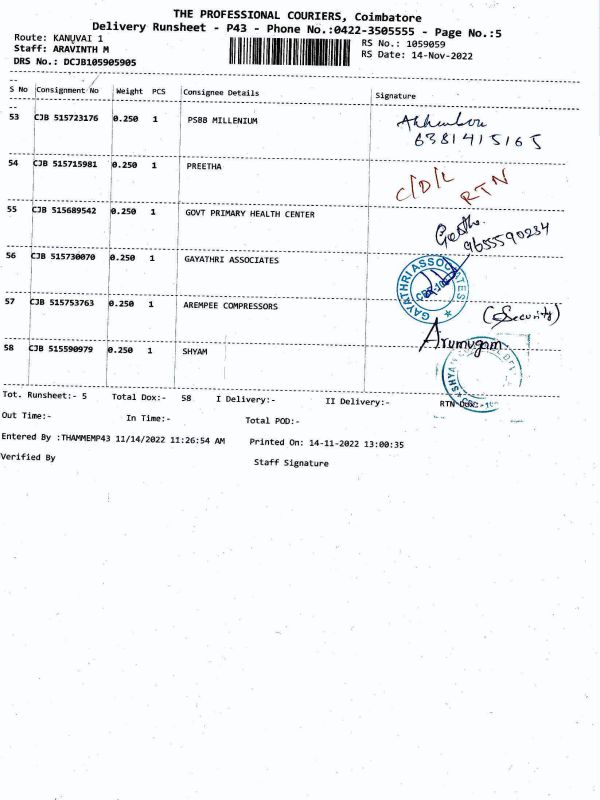 THE PROFESSIONAL COURIERS, Coimbatore
Delivery Runsheet - P43 - Phone No.:0422-3505555 - Page No.:5
Route: KANUVAI 1
RS No.: 1059059
Staff: ARAVINTH M
RS Date: 14-Nov-2022
DRS No.: DCJB105905905
S No Consignment No Weight PCS Consignee Details Signature
53 CJB 515723176 0.250 1 PSBB MILLENIUM
6381415165
54 CJB 515715981 0.250 1 PREETHA C/D/L RTN
55 CJB 515689542 0.250 1 GOVT PRIMARY HEALTH CENTER
9655590234
56 CJB 515730070 0.250 1 GAYATHRI ASSOCIATES
GAYATHRI ASSOCIATES
57 CJB 515753763 0.250 1 AREMPEE COMPRESSORS (Security)
Arumugam
58 CJB 515590979 0.250 1 SHYAM
SHYAM
Tot. Runsheet:- 5 Total Dox:- 58 I Delivery:- II Delivery:- RTN Dox:-
Out Time:- In Time:- Total POD:-
Entered By :THAMMEMP43 11/14/2022 11:26:54 AM Printed On: 14-11-2022 13:00:35
Verified By Staff Signature